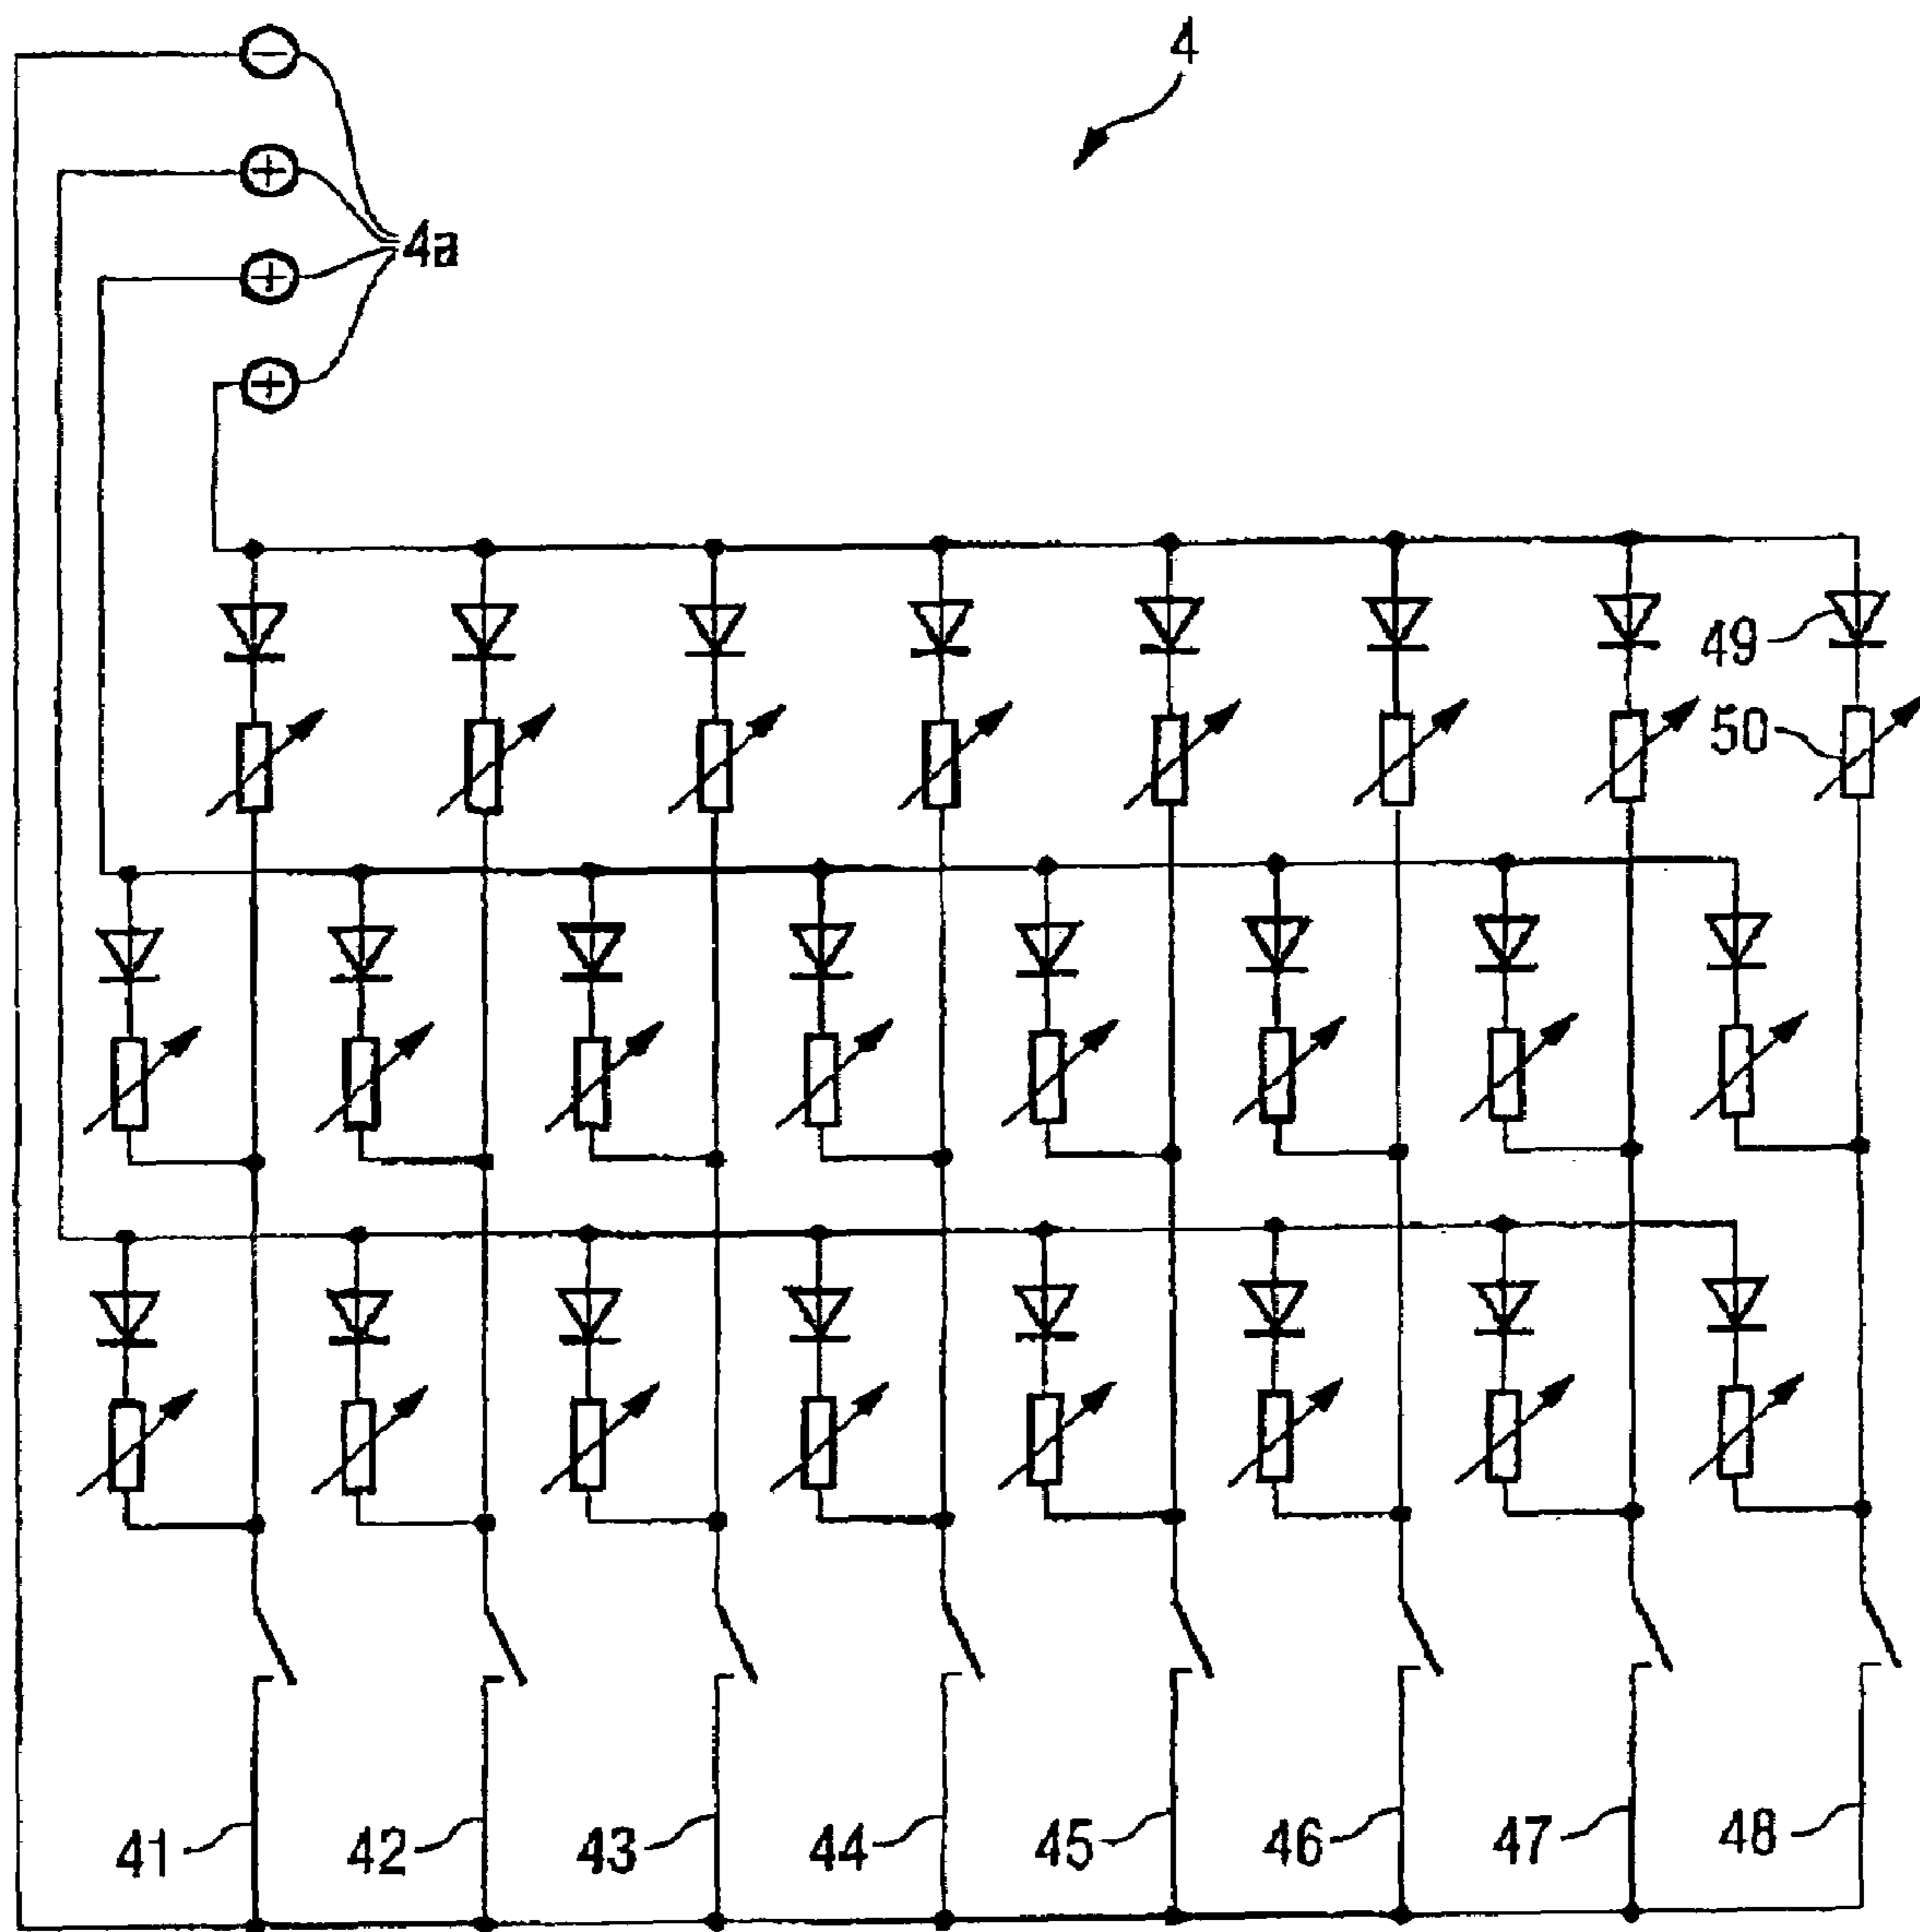 4
−
+
+
+
4a
49
50
41 42 43 44 45 46 47 48